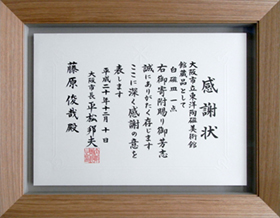 感謝状
大阪市立東洋陶磁美術館
館蔵品として
白磁皿 一点
右御寄附賜り御芳志
誠にありがたく存じます
ここに深く感謝の意を
表します
平成二十年十二月十日
大阪市長 平松邦夫
藤原俊哉殿